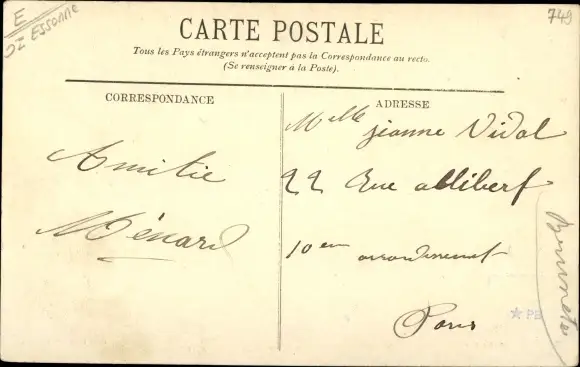 E
DI ESSONNE
749
CARTE POSTALE
Tous les Pays étrangers n'acceptent pas la Correspondance au recto.
(Se renseigner à la Poste).
CORRESPONDANCE
Amitie
Ménard
ADRESSE
Melle jeanne Vidal
22 Rue alibert
10 em arrondissement
Paris
PB